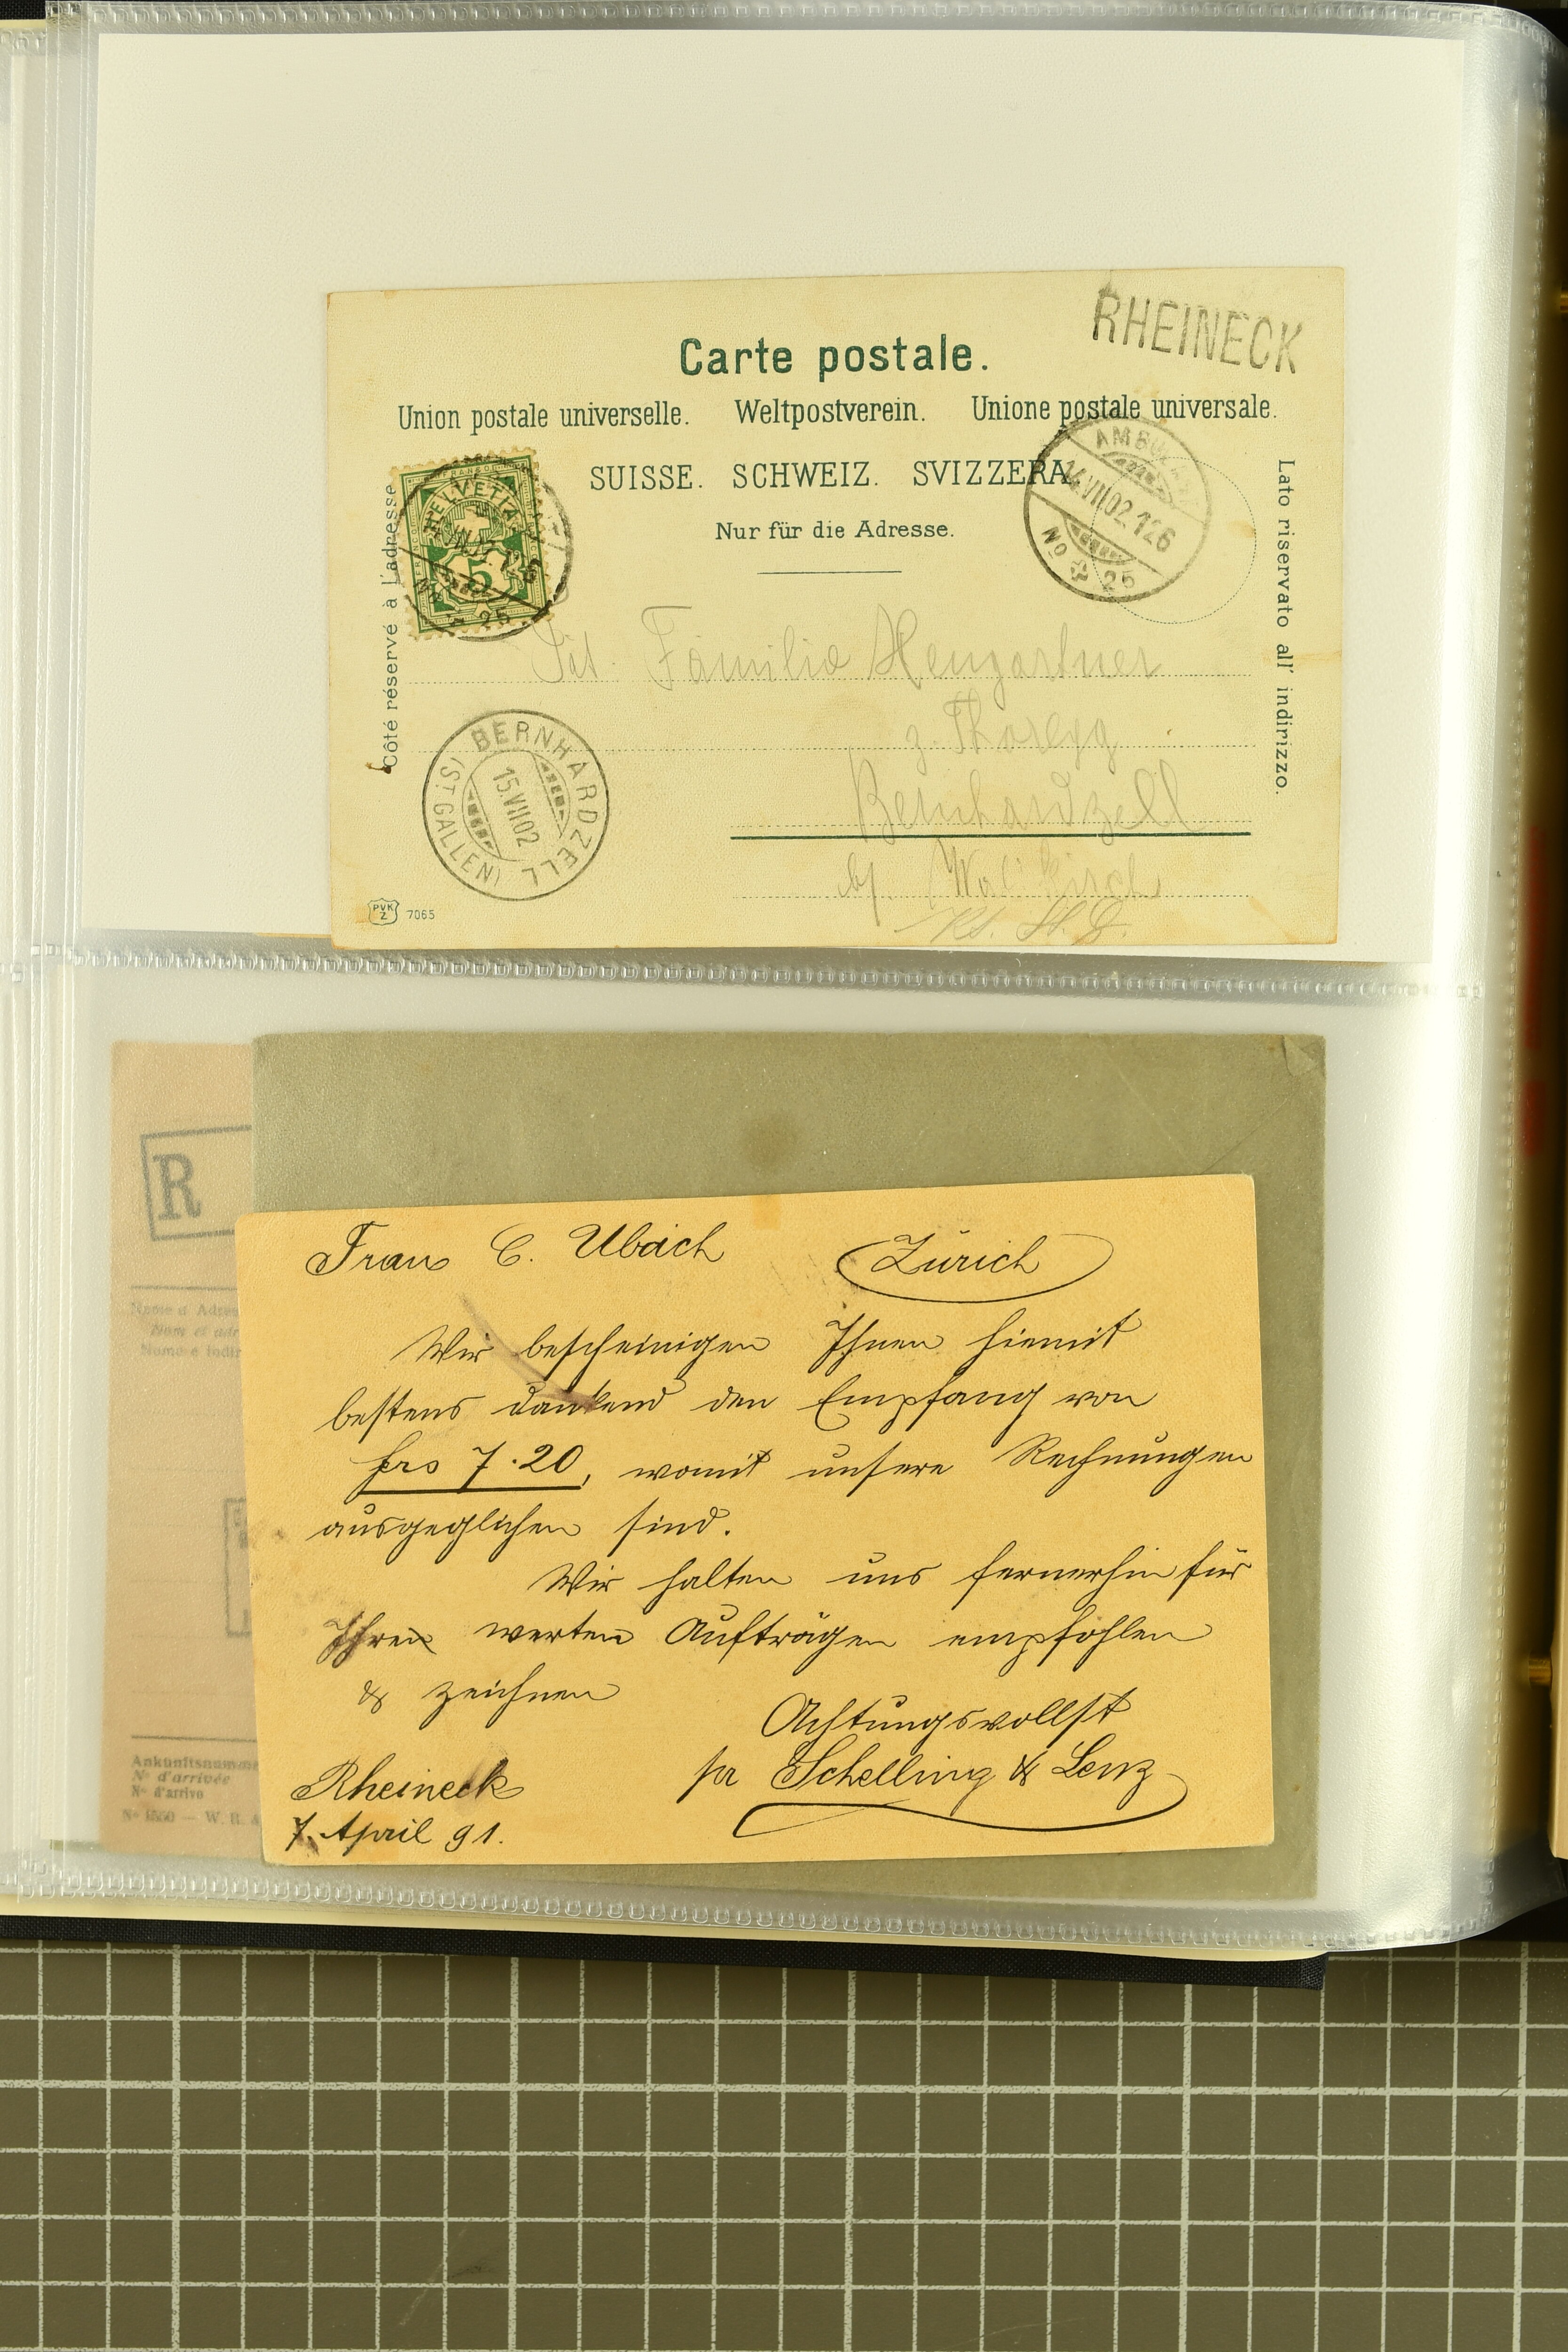 RHEINECK
Carte postale.
Union postale universelle. Weltpostverein. Unione postale universale.
SUISSE. SCHWEIZ. SVIZZERA
Nur für die Adresse.
Côté réservé à l'adresse
Lato riservato all' indirizzo.
HELVETIA
5
25
AMBUL
14.VII.02.126
No 25
Tit. Familie Hengartner
z. Thoregg
Bernhardzell
bj. Waldkirch
Kt. St. G.
BERNHARDZELL
15.VII.02
(ST. GALLEN)
PVK
Z
7065
R
Name u. Adre
Nom et adr
Nome e indir
Ankunftsnumme
No d'arrivée
No d'arrivo
Frau C. Ubach Zürich
Wir bescheinigen Ihnen hiemit
bestens dankend den Empfang von
frs 7.20, womit unsere Rechnungen
ausgeglichen sind.
Wir halten uns fernerhin für
Ihren werten Aufträgen empfohlen
& zeichnen
Achtungsvollst
pr Schelling & Lenz
Rheineck
7. April 91.